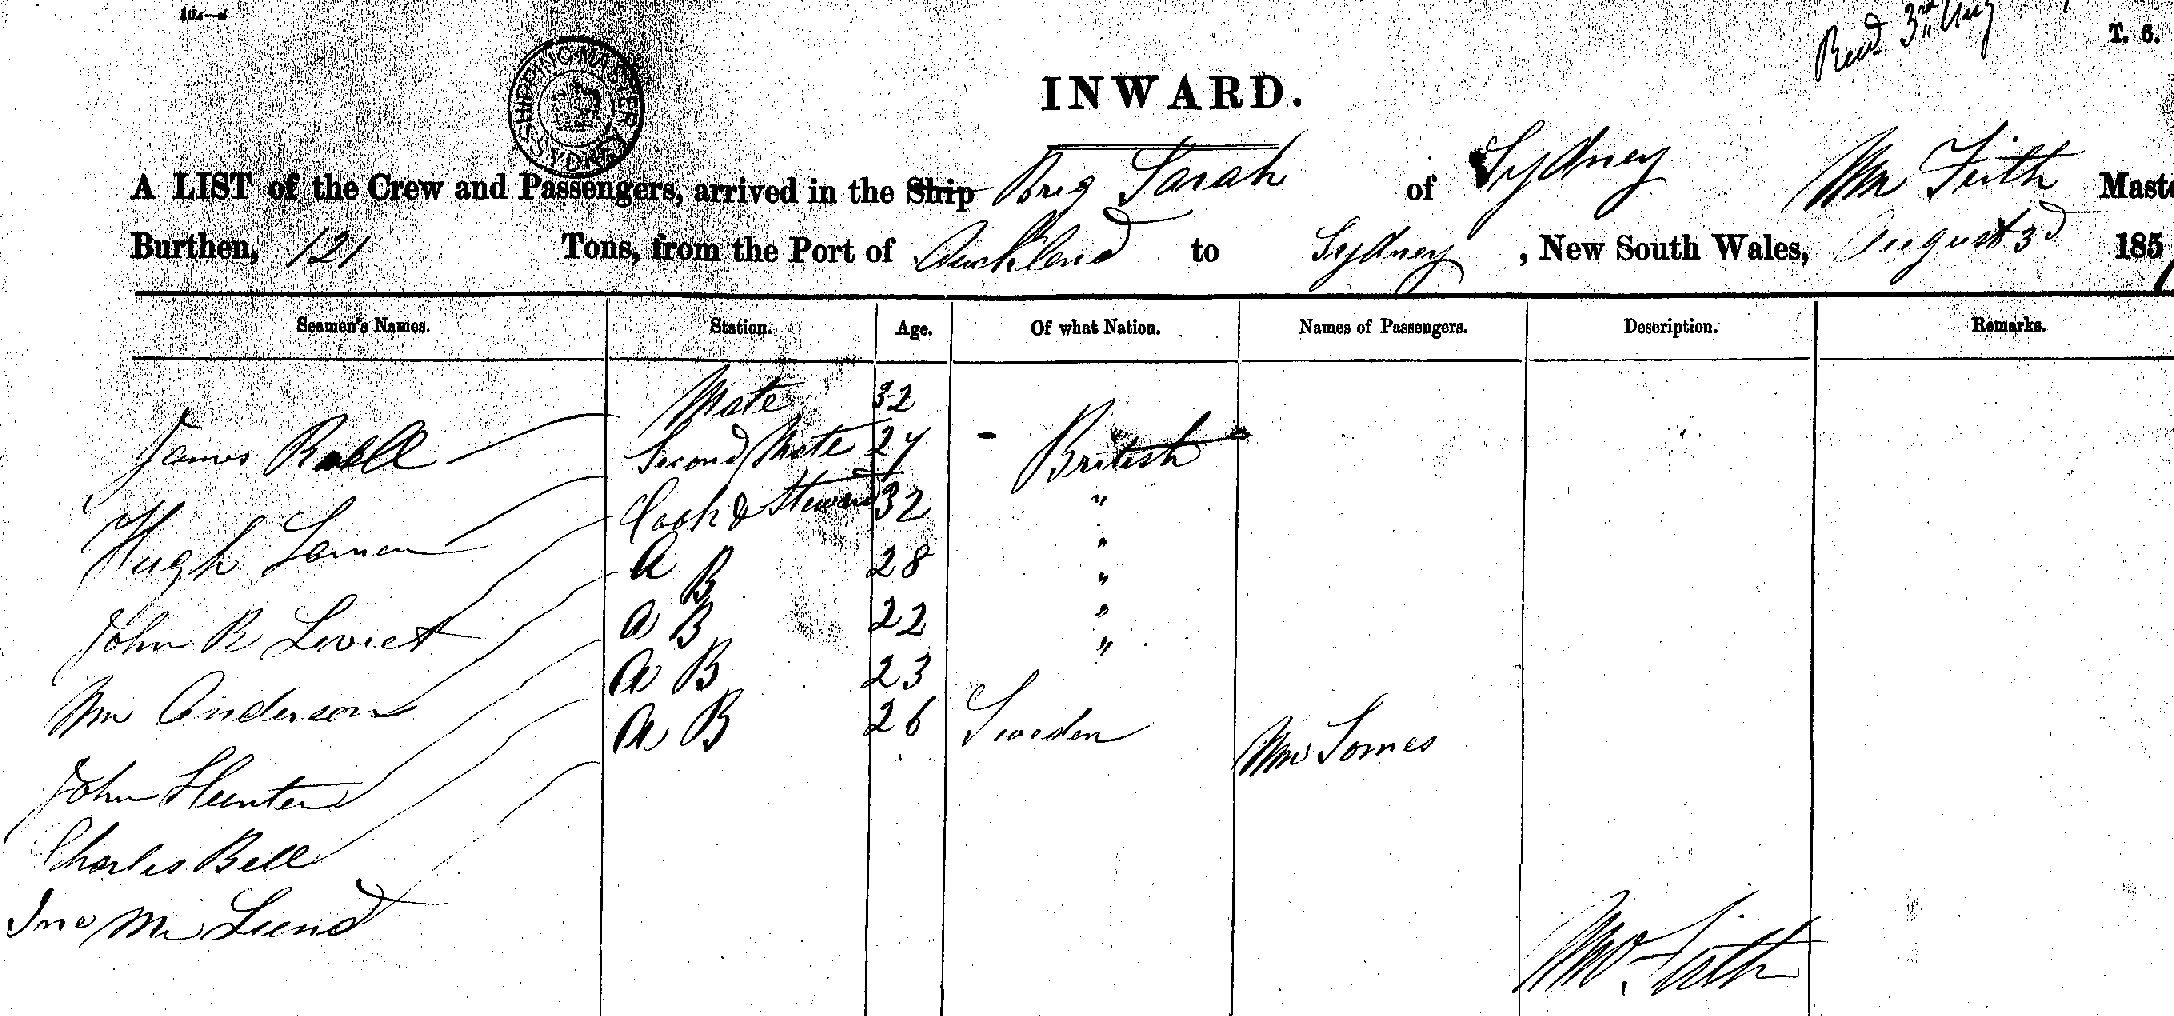 Recd 3rd Aug
T. 6.
SHIPPING MASTER SYDNEY
INWARD.
A LIST of the Crew and Passengers, arrived in the Ship Brig Sarah of Sydney Wm Firth Maste
Burthen, 121 Tons, from the Port of Auckland to Sydney, New South Wales, August 3d 185
Seamen's Names. Station. Age. Of what Nation. Names of Passengers. Description. Remarks.
James Mate 32 British
Hugh Second Mate 27 "
John R Cook & Steward 32 "
Wm Anderson A B 28 "
John Hunter A B 22 "
Charles Bell A B 23 "
Jno Wm Lund A B 26 Sweden Wm
Wm Firth